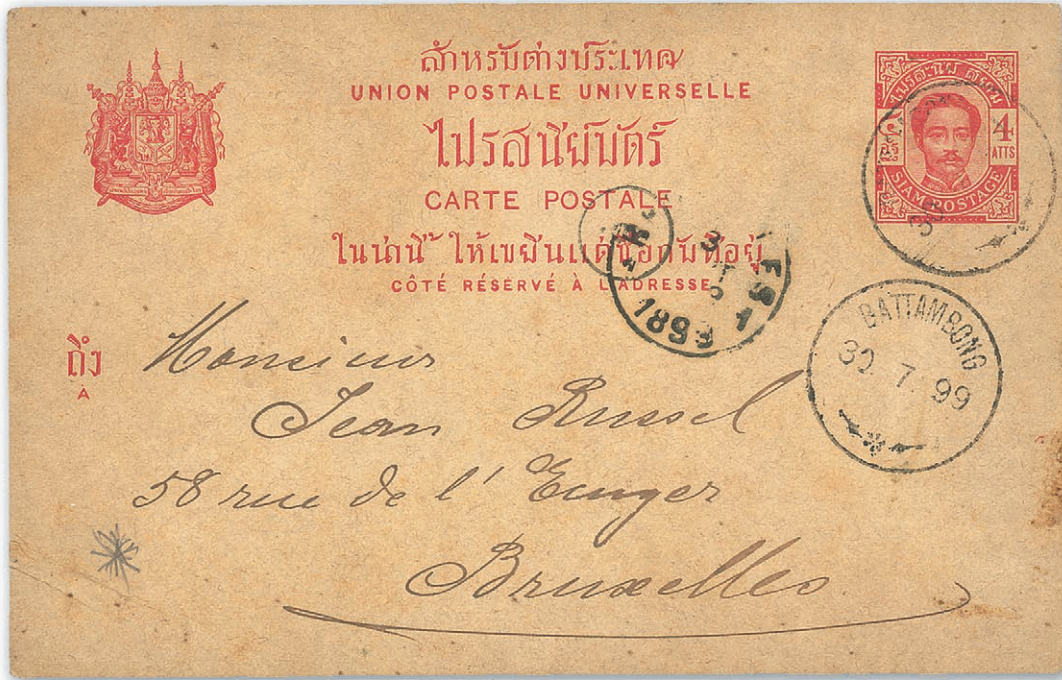 สำหรับต่างประเทศ
UNION POSTALE UNIVERSELLE
ไปรสนียบัตร์
CARTE POSTALE
ในน่านี้ ให้เขยีนแต่ชื่อกับที่อยู่
CÔTÉ RÉSERVÉ À L'ADRESSE
4
ATTS
SIAM POSTAGE
30
1899
BATTAMBONG
30. 7. 99
ถึง
A
Monsieur
Jean Russel
58 rue de l'
Bruxelles